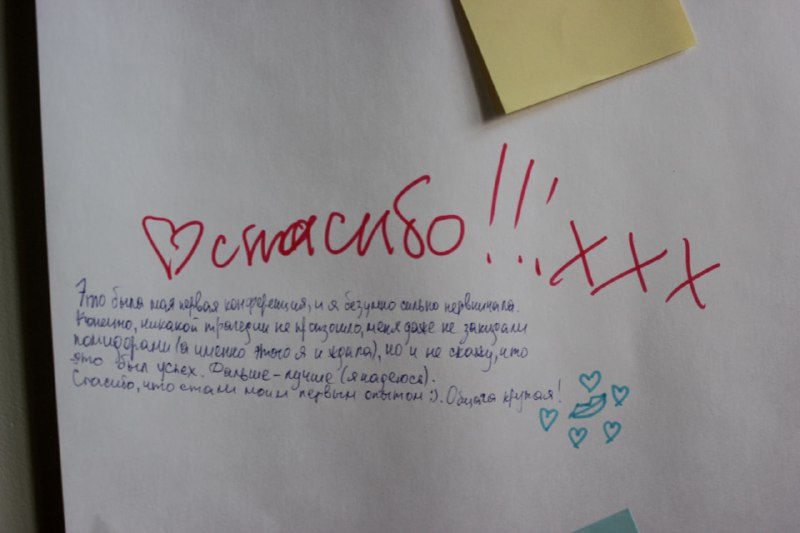 ♡спасибо!!! xxx
Это была моя первая конференция, и я безумно сильно нервничала.
Конечно, никакой трагедии не произошло, меня даже не закидали
помидорами (а именно этого я и ждала), но и не скажу, что
это был успех. Дальше – лучше (я надеюсь).
Спасибо, что стали моим первым опытом :). Общага крутая!